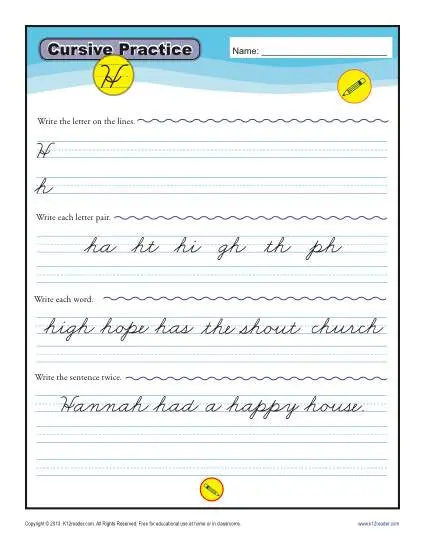 Cursive Practice
Name:
H
Write the letter on the lines.
H
h
Write each letter pair.
ha ht hi gh th ph
Write each word.
high hope has the shout church
Write the sentence twice.
Hannah had a happy house.
Copyright © 2013 K12reader.com. All Rights Reserved. Free for educational use at home or in classrooms.
www.k12reader.com